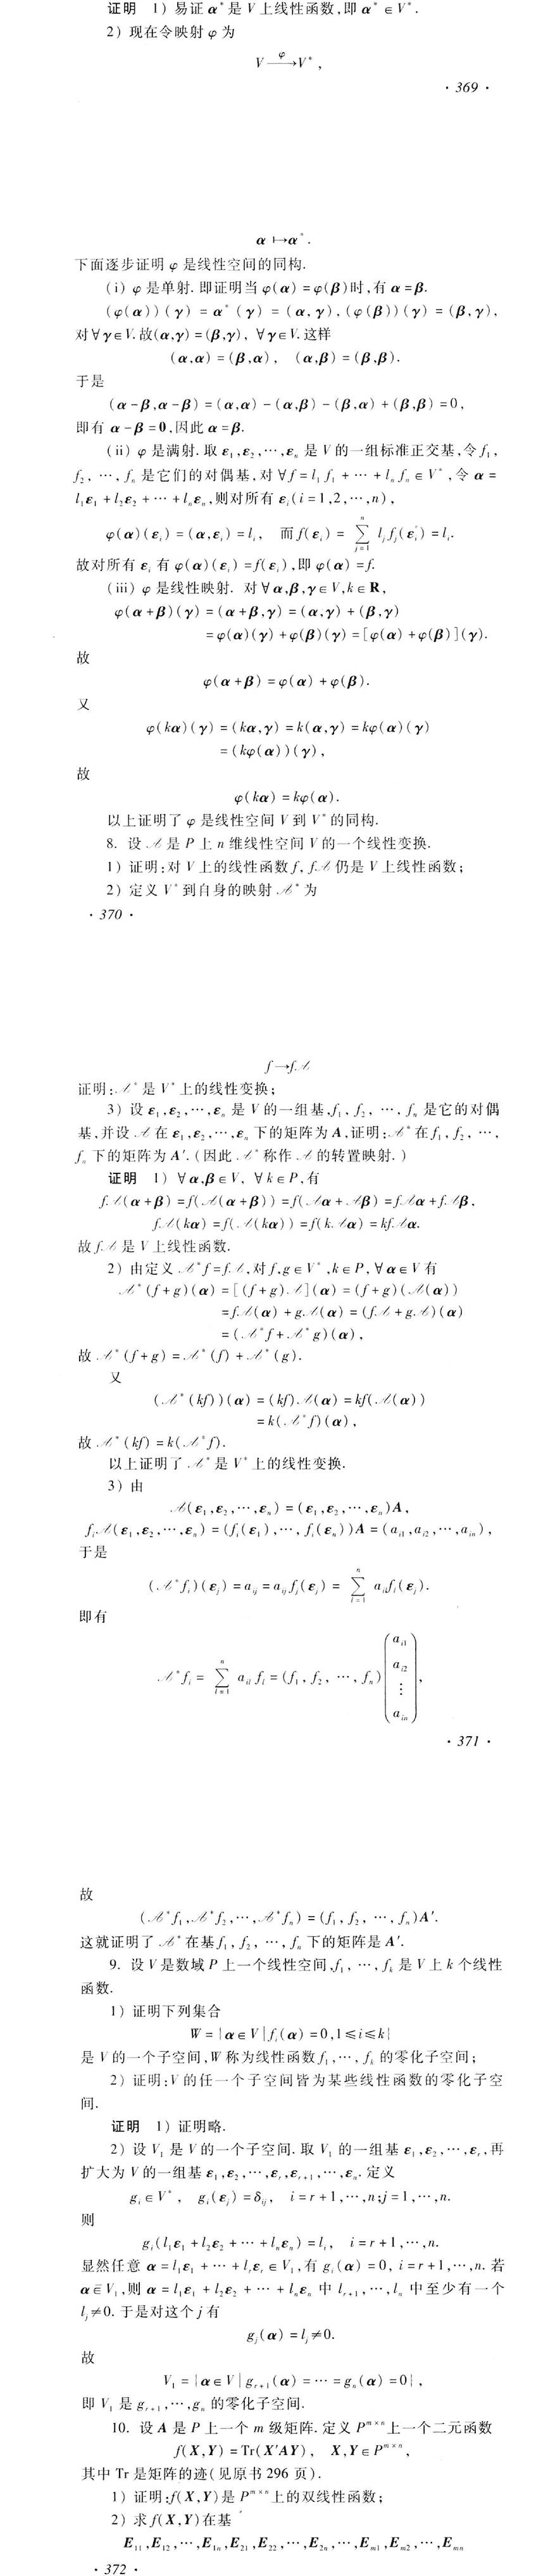 证明 1) 易证 α* 是 V 上线性函数,即 α* ∈ V*.
2) 现在令映射 φ 为
V —φ→ V*,
· 369 ·
α ↦ α*.
下面逐步证明 φ 是线性空间的同构.
(i) φ 是单射. 即证明当 φ(α) = φ(β)时,有 α = β.
(φ(α))(γ) = α*(γ) = (α,γ), (φ(β))(γ) = (β,γ),
对∀γ∈V. 故(α,γ) = (β,γ), ∀γ∈V. 这样
(α,α) = (β,α), (α,β) = (β,β).
于是
(α-β,α-β) = (α,α) - (α,β) - (β,α) + (β,β) = 0,
即有 α-β = 0,因此 α = β.
(ii) φ 是满射. 取 ε₁,ε₂,⋯,εₙ 是 V 的一组标准正交基,令 f₁,
f₂, ⋯, fₙ 是它们的对偶基,对 ∀f = l₁f₁ + ⋯ + lₙfₙ ∈ V*,令 α =
l₁ε₁ + l₂ε₂ + ⋯ + lₙεₙ,则对所有 εᵢ(i = 1,2,⋯,n),
φ(α)(εᵢ) = (α,εᵢ) = lᵢ, 而 f(εᵢ) = ∑_{j=1}^{n} lⱼfⱼ(εᵢ) = lᵢ.
故对所有 εᵢ 有 φ(α)(εᵢ) = f(εᵢ),即 φ(α) = f.
(iii) φ 是线性映射. 对∀α,β,γ∈V,k∈R,
φ(α+β)(γ) = (α+β,γ) = (α,γ) + (β,γ)
= φ(α)(γ) + φ(β)(γ) = [φ(α) + φ(β)](γ).
故
φ(α+β) = φ(α) + φ(β).
又
φ(kα)(γ) = (kα,γ) = k(α,γ) = kφ(α)(γ)
= (kφ(α))(γ),
故
φ(kα) = kφ(α).
以上证明了 φ 是线性空间 V 到 V* 的同构.
8. 设 𝒜 是 P 上 n 维线性空间 V 的一个线性变换.
1) 证明:对 V 上的线性函数 f, f𝒜 仍是 V 上线性函数;
2) 定义 V* 到自身的映射 𝒜* 为
· 370 ·
f → f𝒜
证明:𝒜* 是 V* 上的线性变换;
3) 设 ε₁,ε₂,⋯,εₙ 是 V 的一组基,f₁, f₂, ⋯, fₙ 是它的对偶
基,并设 𝒜 在 ε₁,ε₂,⋯,εₙ 下的矩阵为 A,证明:𝒜* 在 f₁, f₂, ⋯,
fₙ 下的矩阵为 A′. (因此 𝒜* 称作 𝒜 的转置映射.)
证明 1) ∀α,β∈V, ∀k∈P,有
f𝒜(α+β) = f(𝒜(α+β)) = f(𝒜α+𝒜β) = f𝒜α + f𝒜β,
f𝒜(kα) = f(𝒜(kα)) = f(k𝒜α) = kf𝒜α.
故 f𝒜 是 V 上线性函数.
2) 由定义 𝒜*f = f𝒜,对 f,g∈V*,k∈P,∀α∈V 有
𝒜*(f+g)(α) = [(f+g)𝒜](α) = (f+g)(𝒜(α))
= f𝒜(α) + g𝒜(α) = (f𝒜 + g𝒜)(α)
= (𝒜*f + 𝒜*g)(α),
故 𝒜*(f+g) = 𝒜*(f) + 𝒜*(g).
又
(𝒜*(kf))(α) = (kf)𝒜(α) = kf(𝒜(α))
= k(𝒜*f)(α),
故 𝒜*(kf) = k(𝒜*f).
以上证明了 𝒜* 是 V* 上的线性变换.
3) 由
𝒜(ε₁,ε₂,⋯,εₙ) = (ε₁,ε₂,⋯,εₙ)A,
fᵢ𝒜(ε₁,ε₂,⋯,εₙ) = (fᵢ(ε₁),⋯,fᵢ(εₙ))A = (aᵢ₁,aᵢ₂,⋯,aᵢₙ),
于是
(𝒜*fᵢ)(εⱼ) = aᵢⱼ = aᵢⱼfⱼ(εⱼ) = ∑_{l=1}^{n} aᵢₗfₗ(εⱼ).
即有
𝒜*fᵢ = ∑_{l=1}^{n} aᵢₗfₗ = (f₁, f₂, ⋯, fₙ) (aᵢ₁ aᵢ₂ ⋮ aᵢₙ),
· 371 ·
故
(𝒜*f₁,𝒜*f₂,⋯,𝒜*fₙ) = (f₁, f₂, ⋯, fₙ)A′.
这就证明了 𝒜* 在基 f₁, f₂, ⋯, fₙ 下的矩阵是 A′.
9. 设 V 是数域 P 上一个线性空间,f₁, ⋯, fₖ 是 V 上 k 个线性
函数.
1) 证明下列集合
W = {α∈V | fᵢ(α) = 0,1≤i≤k}
是 V 的一个子空间,W 称为线性函数 f₁,⋯, fₖ 的零化子空间;
2) 证明:V 的任一个子空间皆为某些线性函数的零化子空
间.
证明 1) 证明略.
2) 设 V₁ 是 V 的一个子空间. 取 V₁ 的一组基 ε₁,ε₂,⋯,εᵣ,再
扩大为 V 的一组基 ε₁,ε₂,⋯,εᵣ,εᵣ₊₁,⋯,εₙ. 定义
gᵢ∈V*, gᵢ(εⱼ) = δᵢⱼ, i = r+1,⋯,n;j = 1,⋯,n.
则
gᵢ(l₁ε₁ + l₂ε₂ + ⋯ + lₙεₙ) = lᵢ, i = r+1,⋯,n.
显然任意 α = l₁ε₁ + ⋯ + lᵣεᵣ ∈ V₁,有 gᵢ(α) = 0, i = r+1,⋯,n. 若
α∉V₁,则 α = l₁ε₁ + l₂ε₂ + ⋯ + lₙεₙ 中 lᵣ₊₁,⋯,lₙ 中至少有一个
lⱼ≠0. 于是对这个 j 有
gⱼ(α) = lⱼ≠0.
故
V₁ = {α∈V | gᵣ₊₁(α) = ⋯ = gₙ(α) = 0},
即 V₁ 是 gᵣ₊₁,⋯,gₙ 的零化子空间.
10. 设 A 是 P 上一个 m 级矩阵. 定义 P^{m×n} 上一个二元函数
f(X,Y) = Tr(X′AY), X,Y∈P^{m×n},
其中 Tr 是矩阵的迹(见原书 296 页).
1) 证明:f(X,Y)是 P^{m×n} 上的双线性函数;
2) 求 f(X,Y)在基
E₁₁,E₁₂,⋯,E₁ₙ,E₂₁,E₂₂,⋯,E₂ₙ,⋯,Eₘ₁,Eₘ₂,⋯,Eₘₙ
· 372 ·